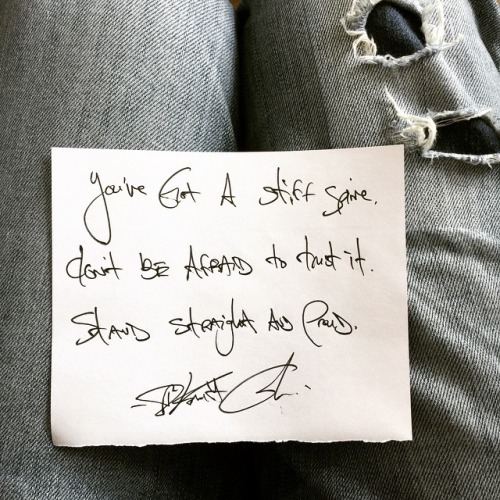 You've Got A stiff spine.
don't BE AFRAID to trust it.
STAND straight AND Proud.